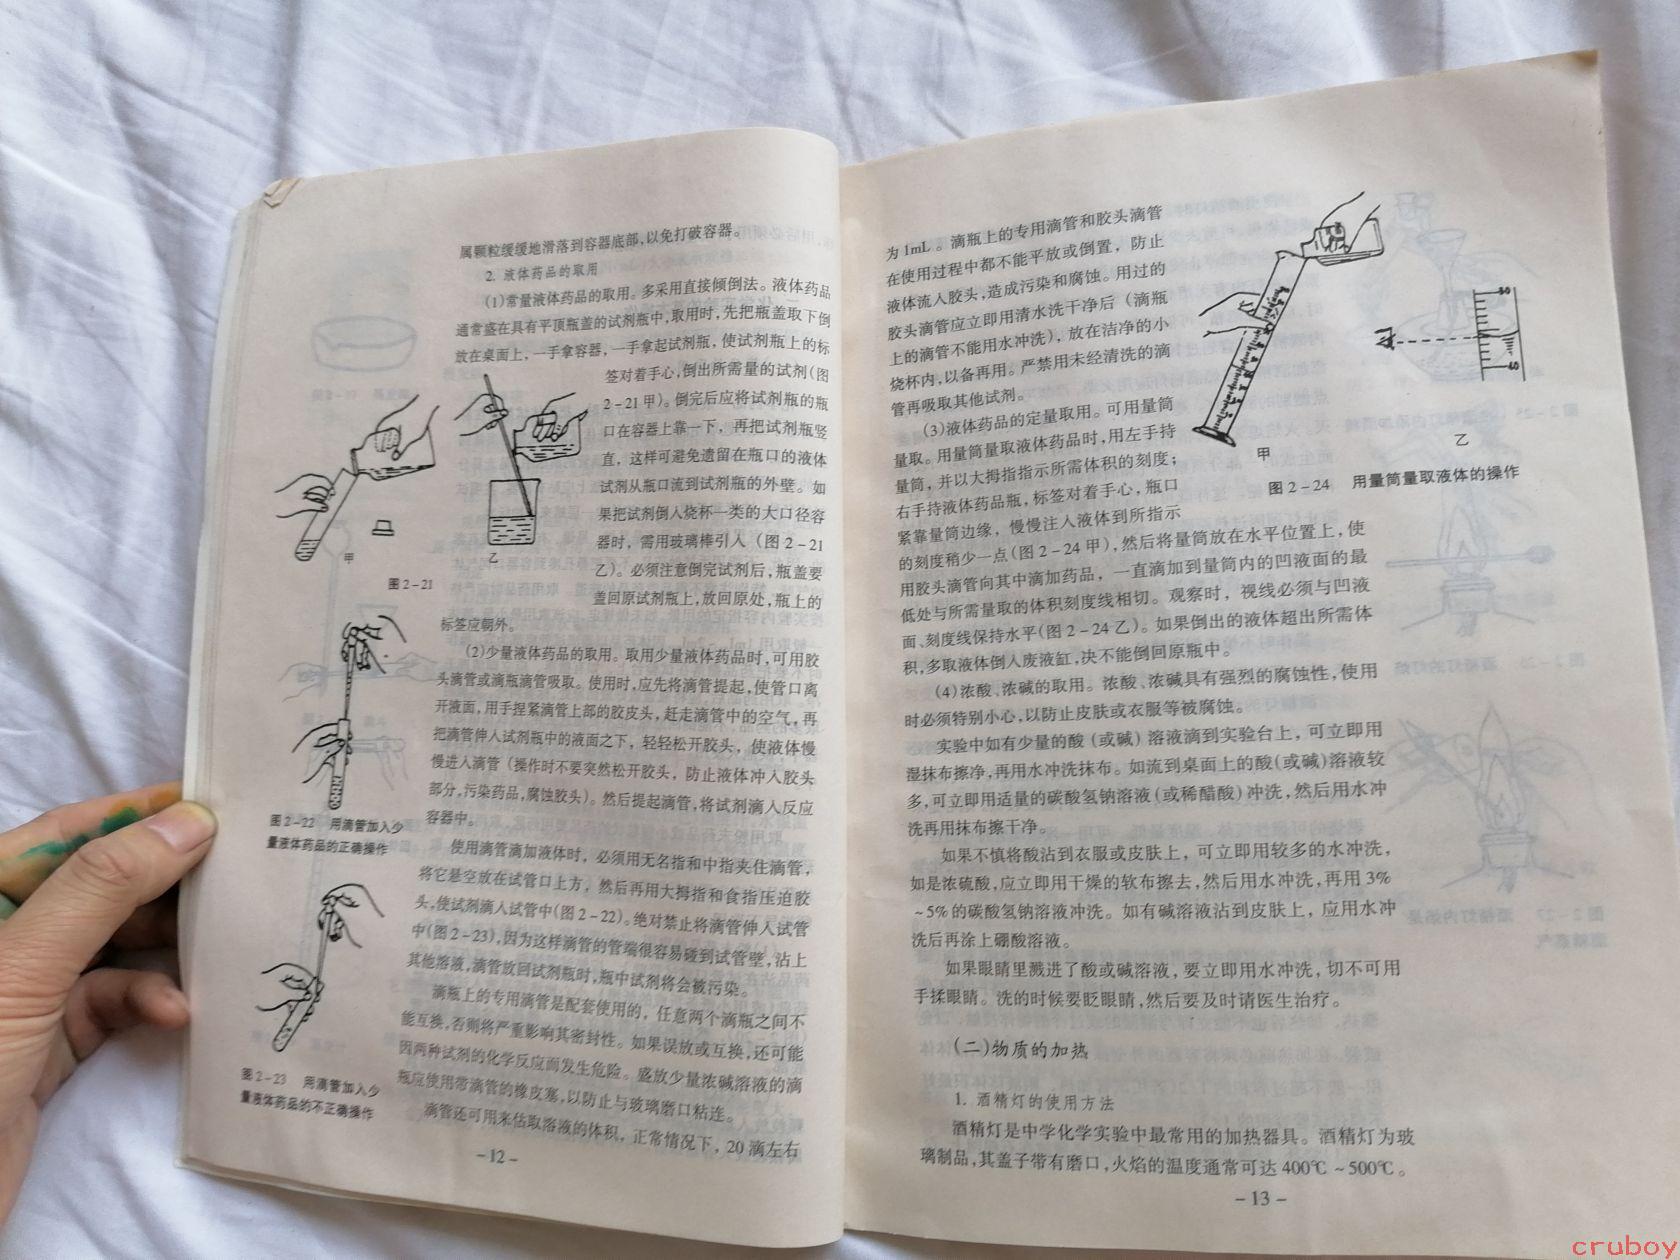 属颗粒缓缓地滑落到容器底部,以免打破容器。
2. 液体药品的取用
(1)常量液体药品的取用。多采用直接倾倒法。液体药品
通常盛在具有平顶瓶盖的试剂瓶中,取用时,先把瓶盖取下倒
放在桌面上,一手拿容器,一手拿起试剂瓶,使试剂瓶上的标
签对着手心,倒出所需量的试剂(图
2-21甲)。倒完后应将试剂瓶的瓶
口在容器上靠一下，再把试剂瓶竖
直，这样可避免遗留在瓶口的液体
试剂从瓶口流到试剂瓶的外壁。如
果把试剂倒入烧杯一类的大口径容
器时，需用玻璃棒引入（图2-21
乙)。必须注意倒完试剂后,瓶盖要
盖回原试剂瓶上,放回原处,瓶上的
标签应朝外。
甲
乙
图2-21
(2)少量液体药品的取用。取用少量液体药品时,可用胶
头滴管或滴瓶滴管吸取。使用时,应先将滴管提起,使管口离
开液面,用手捏紧滴管上部的胶皮头,赶走滴管中的空气,再
把滴管伸入试剂瓶中的液面之下，轻轻松开胶头，使液体慢
慢进入滴管（操作时不要突然松开胶头，防止液体冲入胶头
部分,污染药品,腐蚀胶头)。然后提起滴管,将试剂滴入反应
容器中。
图2-22 用滴管加入少
量液体药品的正确操作
使用滴管滴加液体时，必须用无名指和中指夹住滴管,
将它悬空放在试管口上方，然后再用大拇指和食指压迫胶
头,使试剂滴入试管中(图2-22)。绝对禁止将滴管伸入试管
中(图2-23),因为这样滴管的管端很容易碰到试管壁,沾上
其他溶液,滴管放回试剂瓶时,瓶中试剂将会被污染。
滴瓶上的专用滴管是配套使用的，任意两个滴瓶之间不
能互换,否则将严重影响其密封性。如果误放或互换,还可能
因两种试剂的化学反应而发生危险。盛放少量浓碱溶液的滴
瓶应使用带滴管的橡皮塞,以防止与玻璃磨口粘连。
滴管还可用来估取溶液的体积，正常情况下，20滴左右
图2-23 用滴管加入少
量液体药品的不正确操作
-12-
为1mL。滴瓶上的专用滴管和胶头滴管
在使用过程中都不能平放或倒置，防止
液体流入胶头,造成污染和腐蚀。用过的
胶头滴管应立即用清水洗干净后（滴瓶
上的滴管不能用水冲洗)，放在洁净的小
烧杯内,以备再用。严禁用未经清洗的滴
管再吸取其他试剂。
(3)液体药品的定量取用。可用量筒
量取。用量筒量取液体药品时,用左手持
量筒，并以大拇指指示所需体积的刻度；
右手持液体药品瓶，标签对着手心，瓶口
紧靠量筒边缘，慢慢注入液体到所指示
的刻度稍少一点(图2-24甲),然后将量筒放在水平位置上，使
用胶头滴管向其中滴加药品，一直滴加到量筒内的凹液面的最
低处与所需量取的体积刻度线相切。观察时，视线必须与凹液
面、刻度线保持水平(图2-24乙)。如果倒出的液体超出所需体
积,多取液体倒入废液缸,决不能倒回原瓶中。
甲
乙
图2-24 用量筒量取液体的操作
(4)浓酸、浓碱的取用。浓酸、浓碱具有强烈的腐蚀性,使用
时必须特别小心,以防止皮肤或衣服等被腐蚀。
实验中如有少量的酸（或碱）溶液滴到实验台上，可立即用
湿抹布擦净,再用水冲洗抹布。如流到桌面上的酸(或碱)溶液较
多,可立即用适量的碳酸氢钠溶液(或稀醋酸)冲洗,然后用水冲
洗再用抹布擦干净。
如果不慎将酸沾到衣服或皮肤上，可立即用较多的水冲洗，
如是浓硫酸,应立即用干燥的软布擦去,然后用水冲洗,再用3%
~5%的碳酸氢钠溶液冲洗。如有碱溶液沾到皮肤上，应用水冲
洗后再涂上硼酸溶液。
如果眼睛里溅进了酸或碱溶液，要立即用水冲洗，切不可用
手揉眼睛。洗的时候要眨眼睛,然后要及时请医生治疗。
(二)物质的加热
1. 酒精灯的使用方法
酒精灯是中学化学实验中最常用的加热器具。酒精灯为玻
璃制品,其盖子带有磨口,火焰的温度通常可达400℃~500℃。
-13-
cruboy